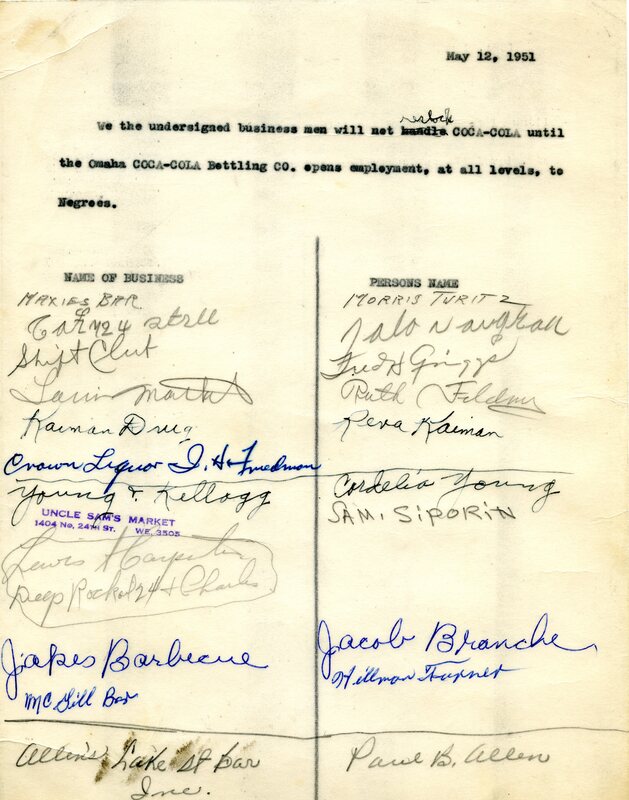 May 12, 1951
restock
We the undersigned business men will not handle COCA-COLA until
the Omaha COCA-COLA Bottling CO. opens employment, at all levels, to
Negroes.
NAME OF BUSINESS PERSONS NAME
MAXIES BAR MORRIS TURITZ
24
Shift Club Fred H Griggs
Market Ruth Feldman
Kaiman Drug Reva Kaiman
Crown Liquor I. H. Friedman
Young & Kellogg Cordelia Young
UNCLE SAM'S MARKET SAM. SIPORIN
1404 No. 24TH ST. WE. 3505
Lewis A Carpenter
Deep Rock Oil 24 & Charles
Jakes Barbecue Jacob Branche
McGill Bar Hillman Turner
Allen's Lake St Bar Paul B. Allen
Inc.